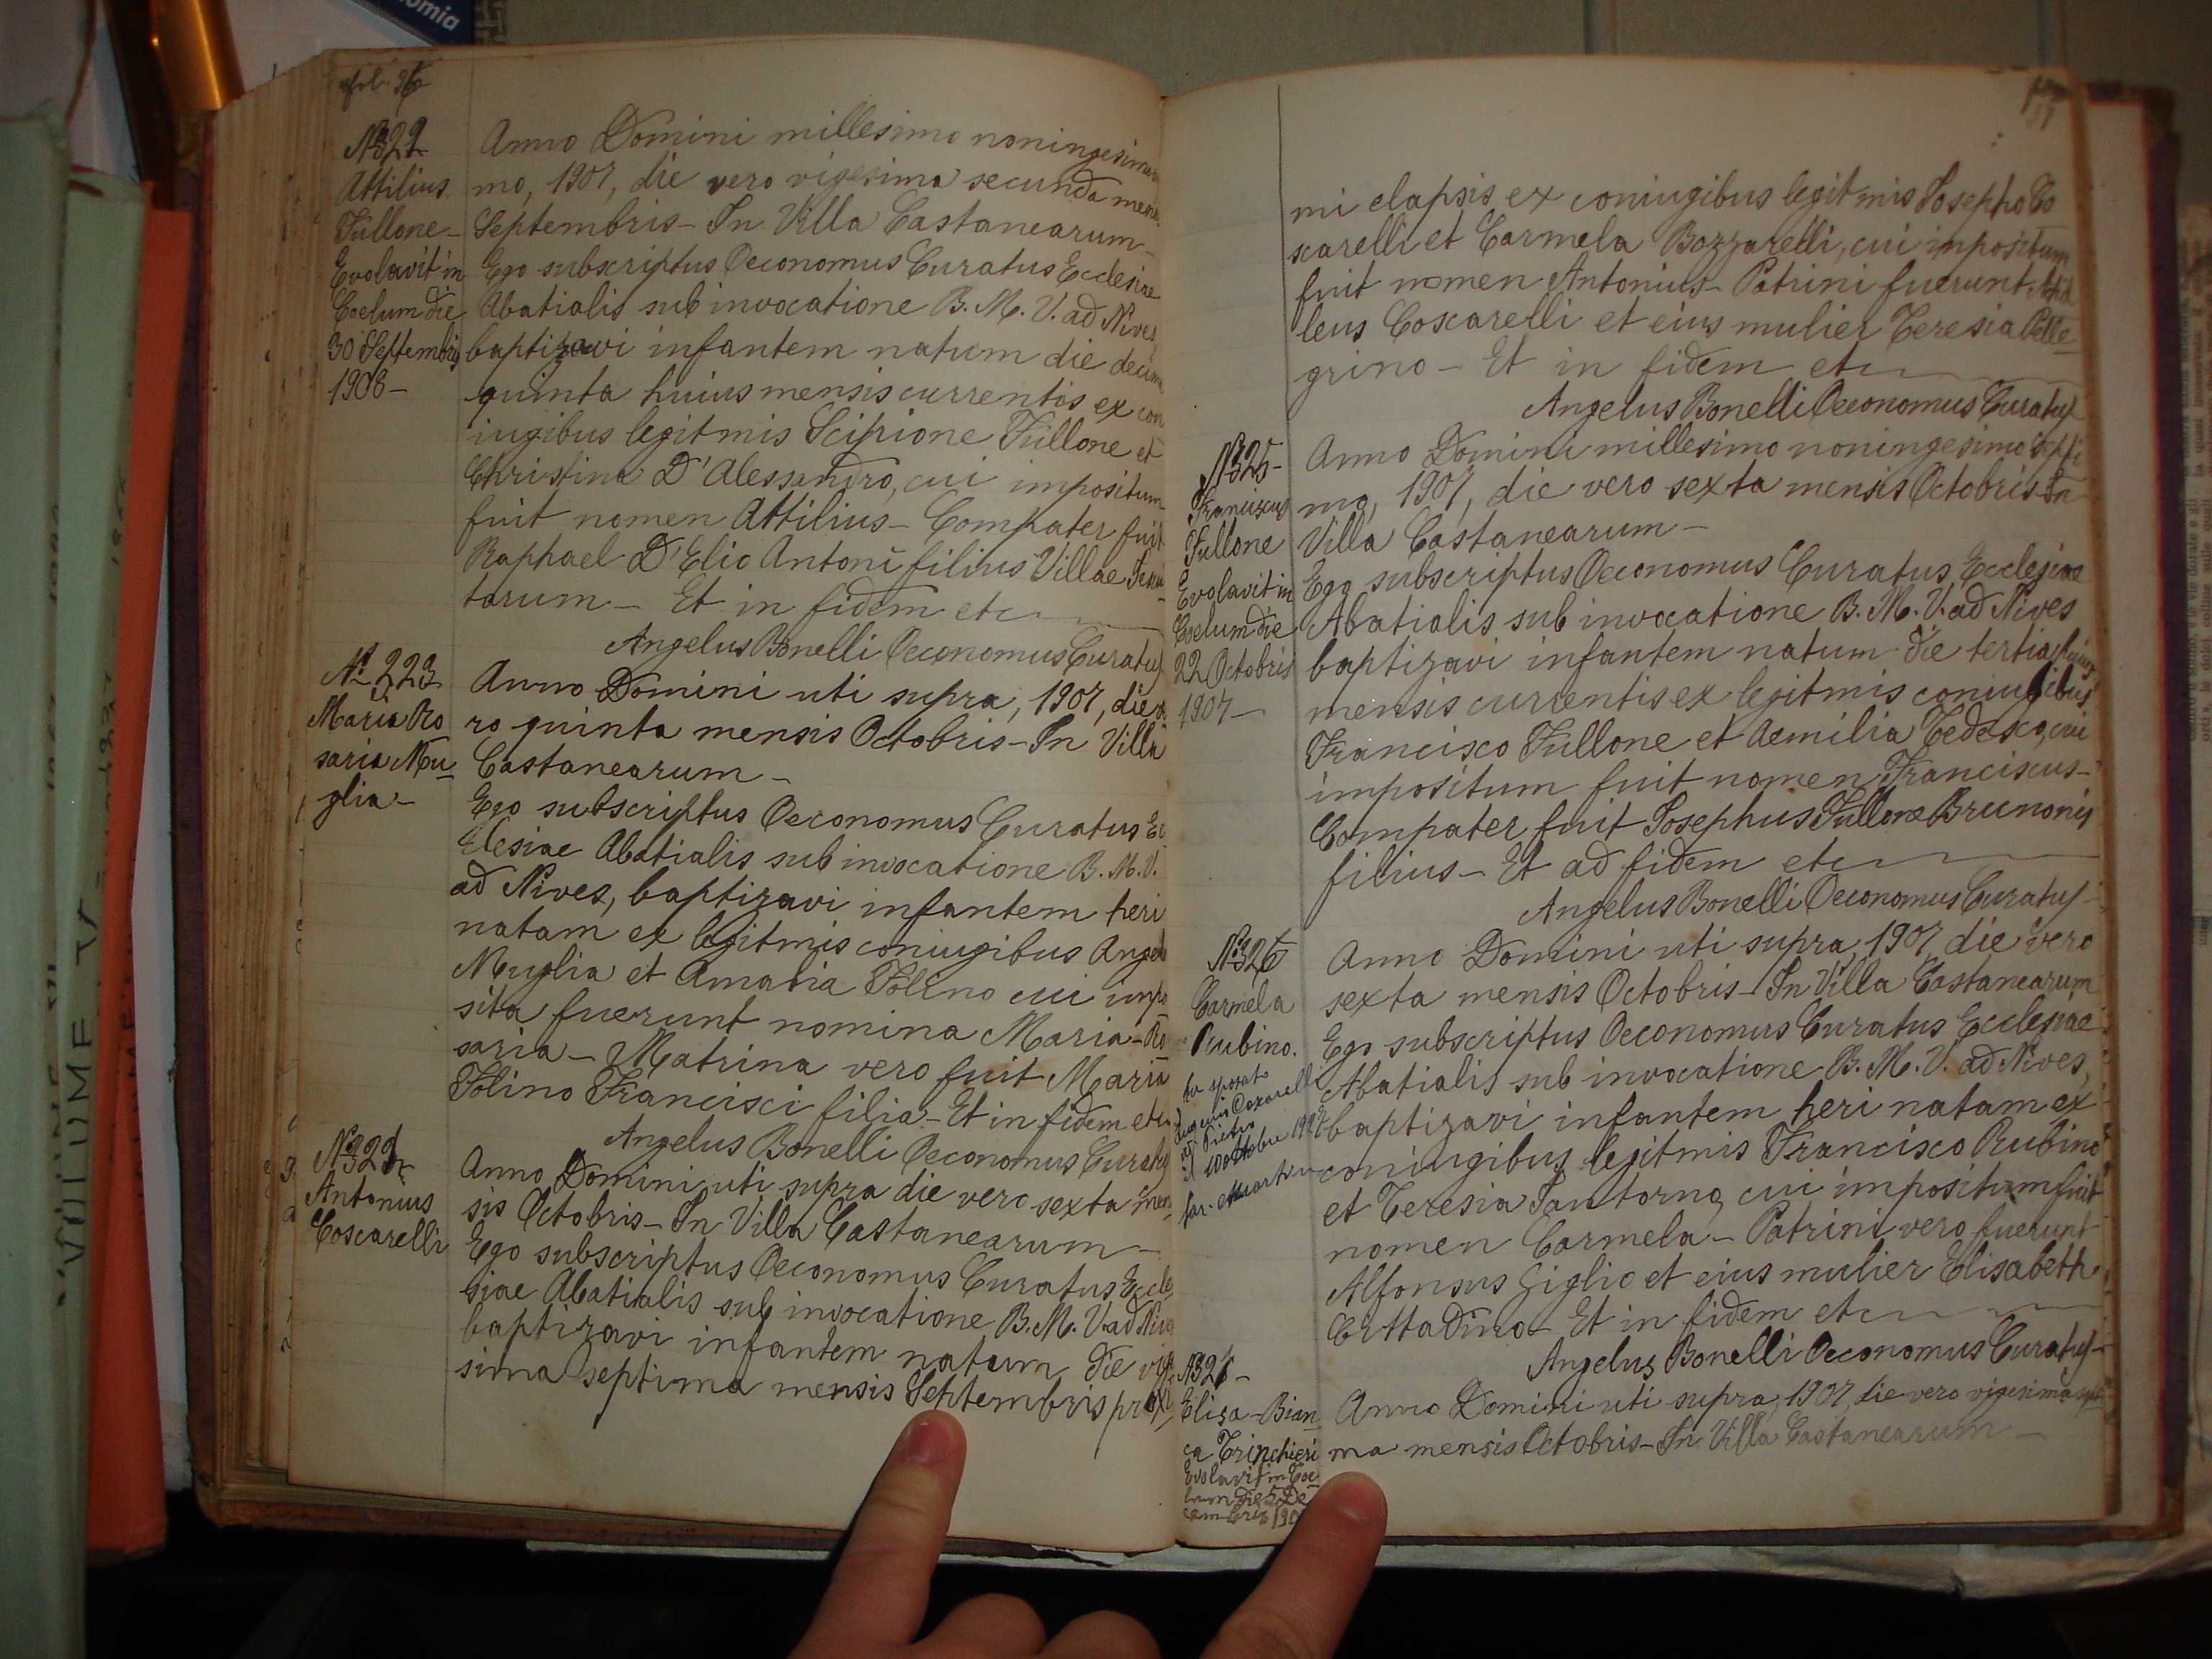 fol. 36
N 322
Attilius
Fullone-
Evolavit in
Coelum die
30 Septembris
1908-
Anno Domini millesimo noningesimo
mo, 1907, die vero vigesima secunda mens
Septembris- In Villa Castanearum-
Ego subscriptus Oeconomus Curatus Ecclesiae
Abatialis sub invocatione B. M. V. ad Nives
baptizavi infantem natum die decima
quinta huius mensis currentis ex con
iugibus legitmis Scipione Fullone et
Christina D'Alessandro, cui impositum
fuit nomen Attilius- Compater fuit
Raphael D'Elio Antoni filius Villae
tarum- Et in fidem etc
Angelus Bonelli Oeconomus Curatus
N. 223
Maria Ro
saria Mu-
glia-
Anno Domini uti supra, 1907, die ve
ro quinta mensis Octobris- In Villa
Castanearum-
Ego subscriptus Oeconomus Curatus Ec
clesiae Abatialis sub invocatione B. M. V.
ad Nives, baptizavi infantem heri
natam ex legitmis coniugibus Angelo
Muglia et Amabia Tolino cui impo
sita fuerunt nomina Maria-Ro
saria- Matrina vero fuit Maria
Tolino Francisci filia- Et in fidem etc
Angelus Bonelli Oeconomus Curatus
N 324
Antonius
Coscarelli
Anno Domini uti supra die vero sexta men
sis Octobris- In Villa Castanearum-
Ego subscriptus Oeconomus Curatus Eccle
siae Abatialis sub invocatione B. M. V. ad Nives
baptizavi infantem natum die vige
sima septima mensis Septembris proxi
mi elapsis ex coniugibus legitmis Iosepho Co
scarelli et Carmela Bozzarelli, cui impositum
fuit nomen Antonius- Patrini fuerunt
leus Coscarelli et eius mulier Teresia Pelle-
grino- Et in fidem etc
Angelus Bonelli Oeconomus Curatus
N 325-
Franciscus
Fullone
Evolavit in
Coelum die
22 Octobris
1907-
Anno Domini millesimo noningesimo septi
mo, 1907, die vero sexta mensis Octobris- In
Villa Castanearum-
Ego subscriptus Oeconomus Curatus Ecclesiae
Abatialis sub invocatione B. M. V. ad Nives
baptizavi infantem natum die tertia huius
mensis currentis ex legitmis coniugibus
Francisco Fullone et Aemilia Tedesco, cui
impositum fuit nomen Franciscus-
Compater fuit Iosephus Fullone Brunonis
filius- Et ad fidem etc
Angelus Bonelli Oeconomus Curatus-
N 326
Carmela
Rubino.
ha sposato
Eugenio Coxarelli
di Pietro
il 10 ottobre
Anno Domini uti supra, 1907, die vero
sexta mensis Octobris- In Villa Castanearum
Ego subscriptus Oeconomus Curatus Ecclesiae
Abatialis sub invocatione B. M. V. ad Nives,
baptizavi infantem heri natam ex
coniugibus legitmis Francisco Rubino
et Teresia Santorno, cui impositum fuit
nomen Carmela- Patrini vero fuerunt
Alfonsus Giglio et eius mulier Elisabeth
Cittadino- Et in fidem etc
Angelus Bonelli Oeconomus Curatus-
Eliza-Bian
ca Trinchieri
Evolavit in Coe
lum die 5 De
cembris 190
Anno Domini uti supra, 1907, die vero vigesima
ma mensis Octobris- In Villa Castanearum-